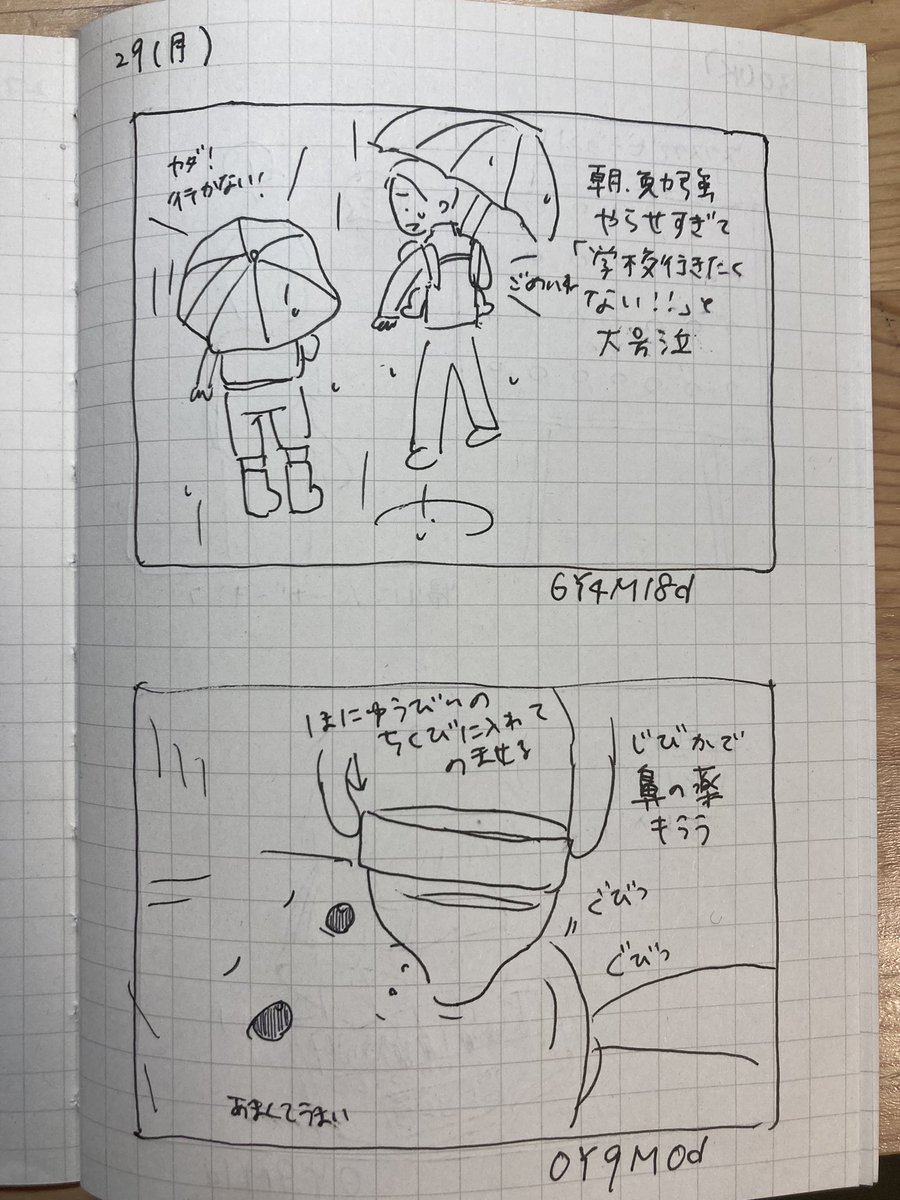 29(月)
ヤダ!
行かない!
朝、勉強
やらせすぎて
「学校行きたく
ない!!」と
大号泣
ごめんね
6Y4M18d
ほにゅうびんの
ちくびに入れて
のませる
じびかで
鼻の薬
もらう
ぐびっ
ぐびっ
あまくてうまい
0Y9M0d